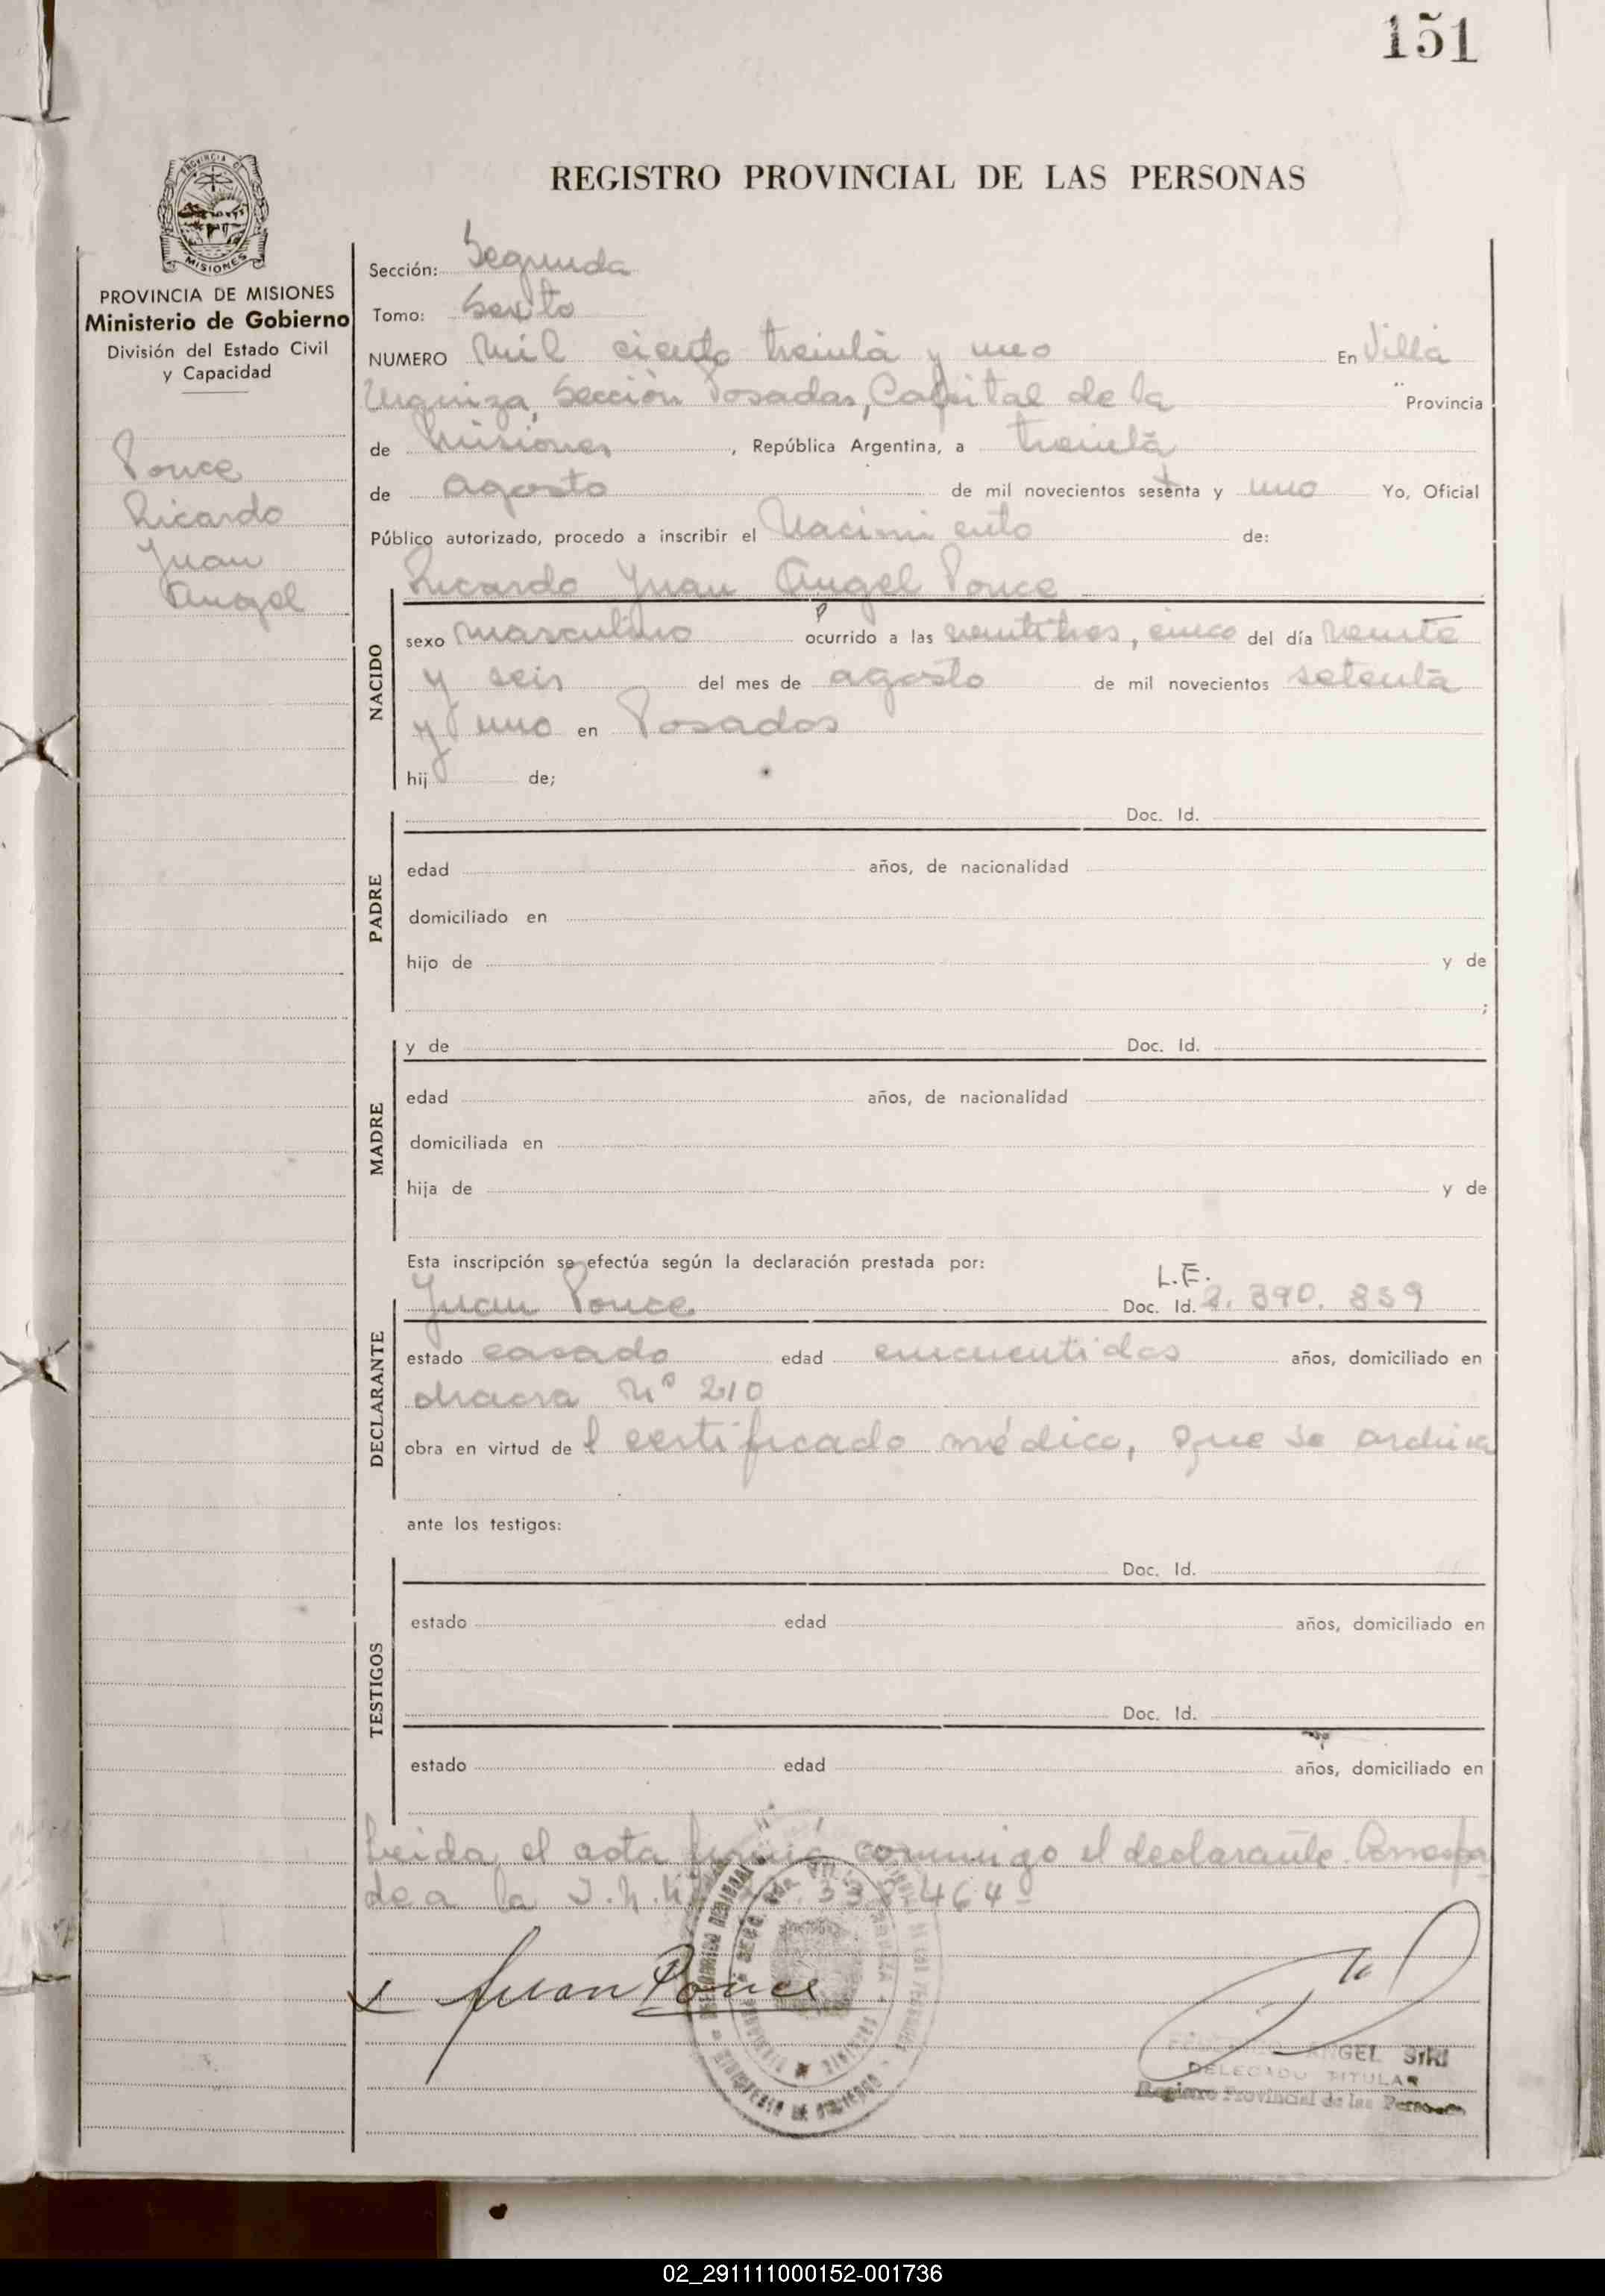 151
PROVINCIA DE MISIONES
Ministerio de Gobierno
División del Estado Civil
y Capacidad
Ponce
Ricardo
Juan
Angel
REGISTRO PROVINCIAL DE LAS PERSONAS
Sección: Segunda
Tomo: Sexto
NUMERO Mil ciento treinta y uno En Villa
Urquiza, Sección Posadas, Capital de la Provincia
de Misiones, República Argentina, a treinta
de agosto de mil novecientos setenta y uno Yo, Oficial
Público autorizado, procedo a inscribir el Nacimiento de:
Ricardo Juan Angel Ponce
NACIDO
sexo masculino ocurrido a las veintitres, cinco del día veinte
y seis del mes de agosto de mil novecientos setenta
y uno en Posadas
hij de;
PADRE
Doc. Id.
edad años, de nacionalidad
domiciliado en
hijo de y de
;
MADRE
y de Doc. Id.
edad años, de nacionalidad
domiciliada en
hija de y de
Esta inscripción se efectúa según la declaración prestada por:
DECLARANTE
L.E.
Juan Ponce Doc. Id. 2.390.859
estado casado edad cincuentidos años, domiciliado en
chacra Nº 210
obra en virtud de l certificado médico, que se archiva
ante los testigos:
TESTIGOS
Doc. Id.
estado edad años, domiciliado en
Doc. Id.
estado edad años, domiciliado en
Leida el acta firmó conmigo el declarante. Correspon
de a la I.N. 464
x Juan Ponce
ANGEL SIRI
DELEGADO TITULAR
Registro Provincial de las Personas
MINISTERIO DE GOBIERNO
02_291111000152-001736